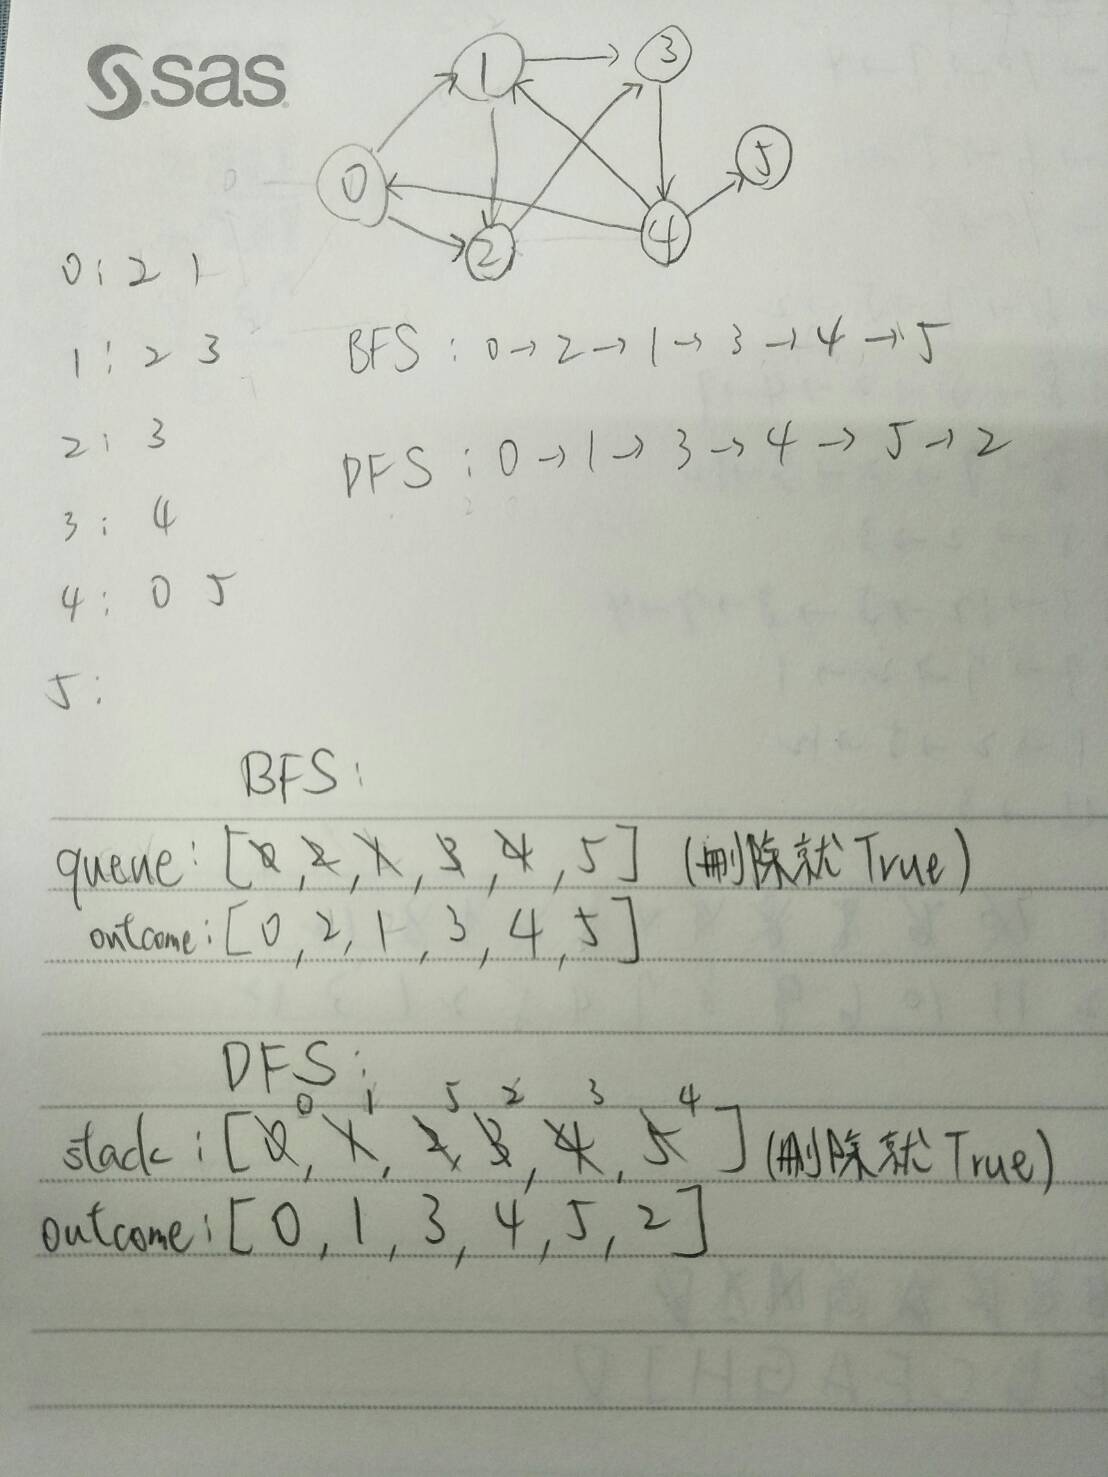 sas
1 3
0 2 4 5
0: 2 1
1: 2 3
BFS: 0→2→1→3→4→5
2: 3
DFS: 0→1→3→4→5→2
3: 4
4: 0 5
5:
BFS:
queue: [0, 2, 1, 3, 4, 5] (刪除就True)
outcome: [0, 2, 1, 3, 4, 5]
DFS:
0 1 5 2 3 4
stack: [0, 1, 2, 3, 4, 5] (刪除就True)
outcome: [0, 1, 3, 4, 5, 2]